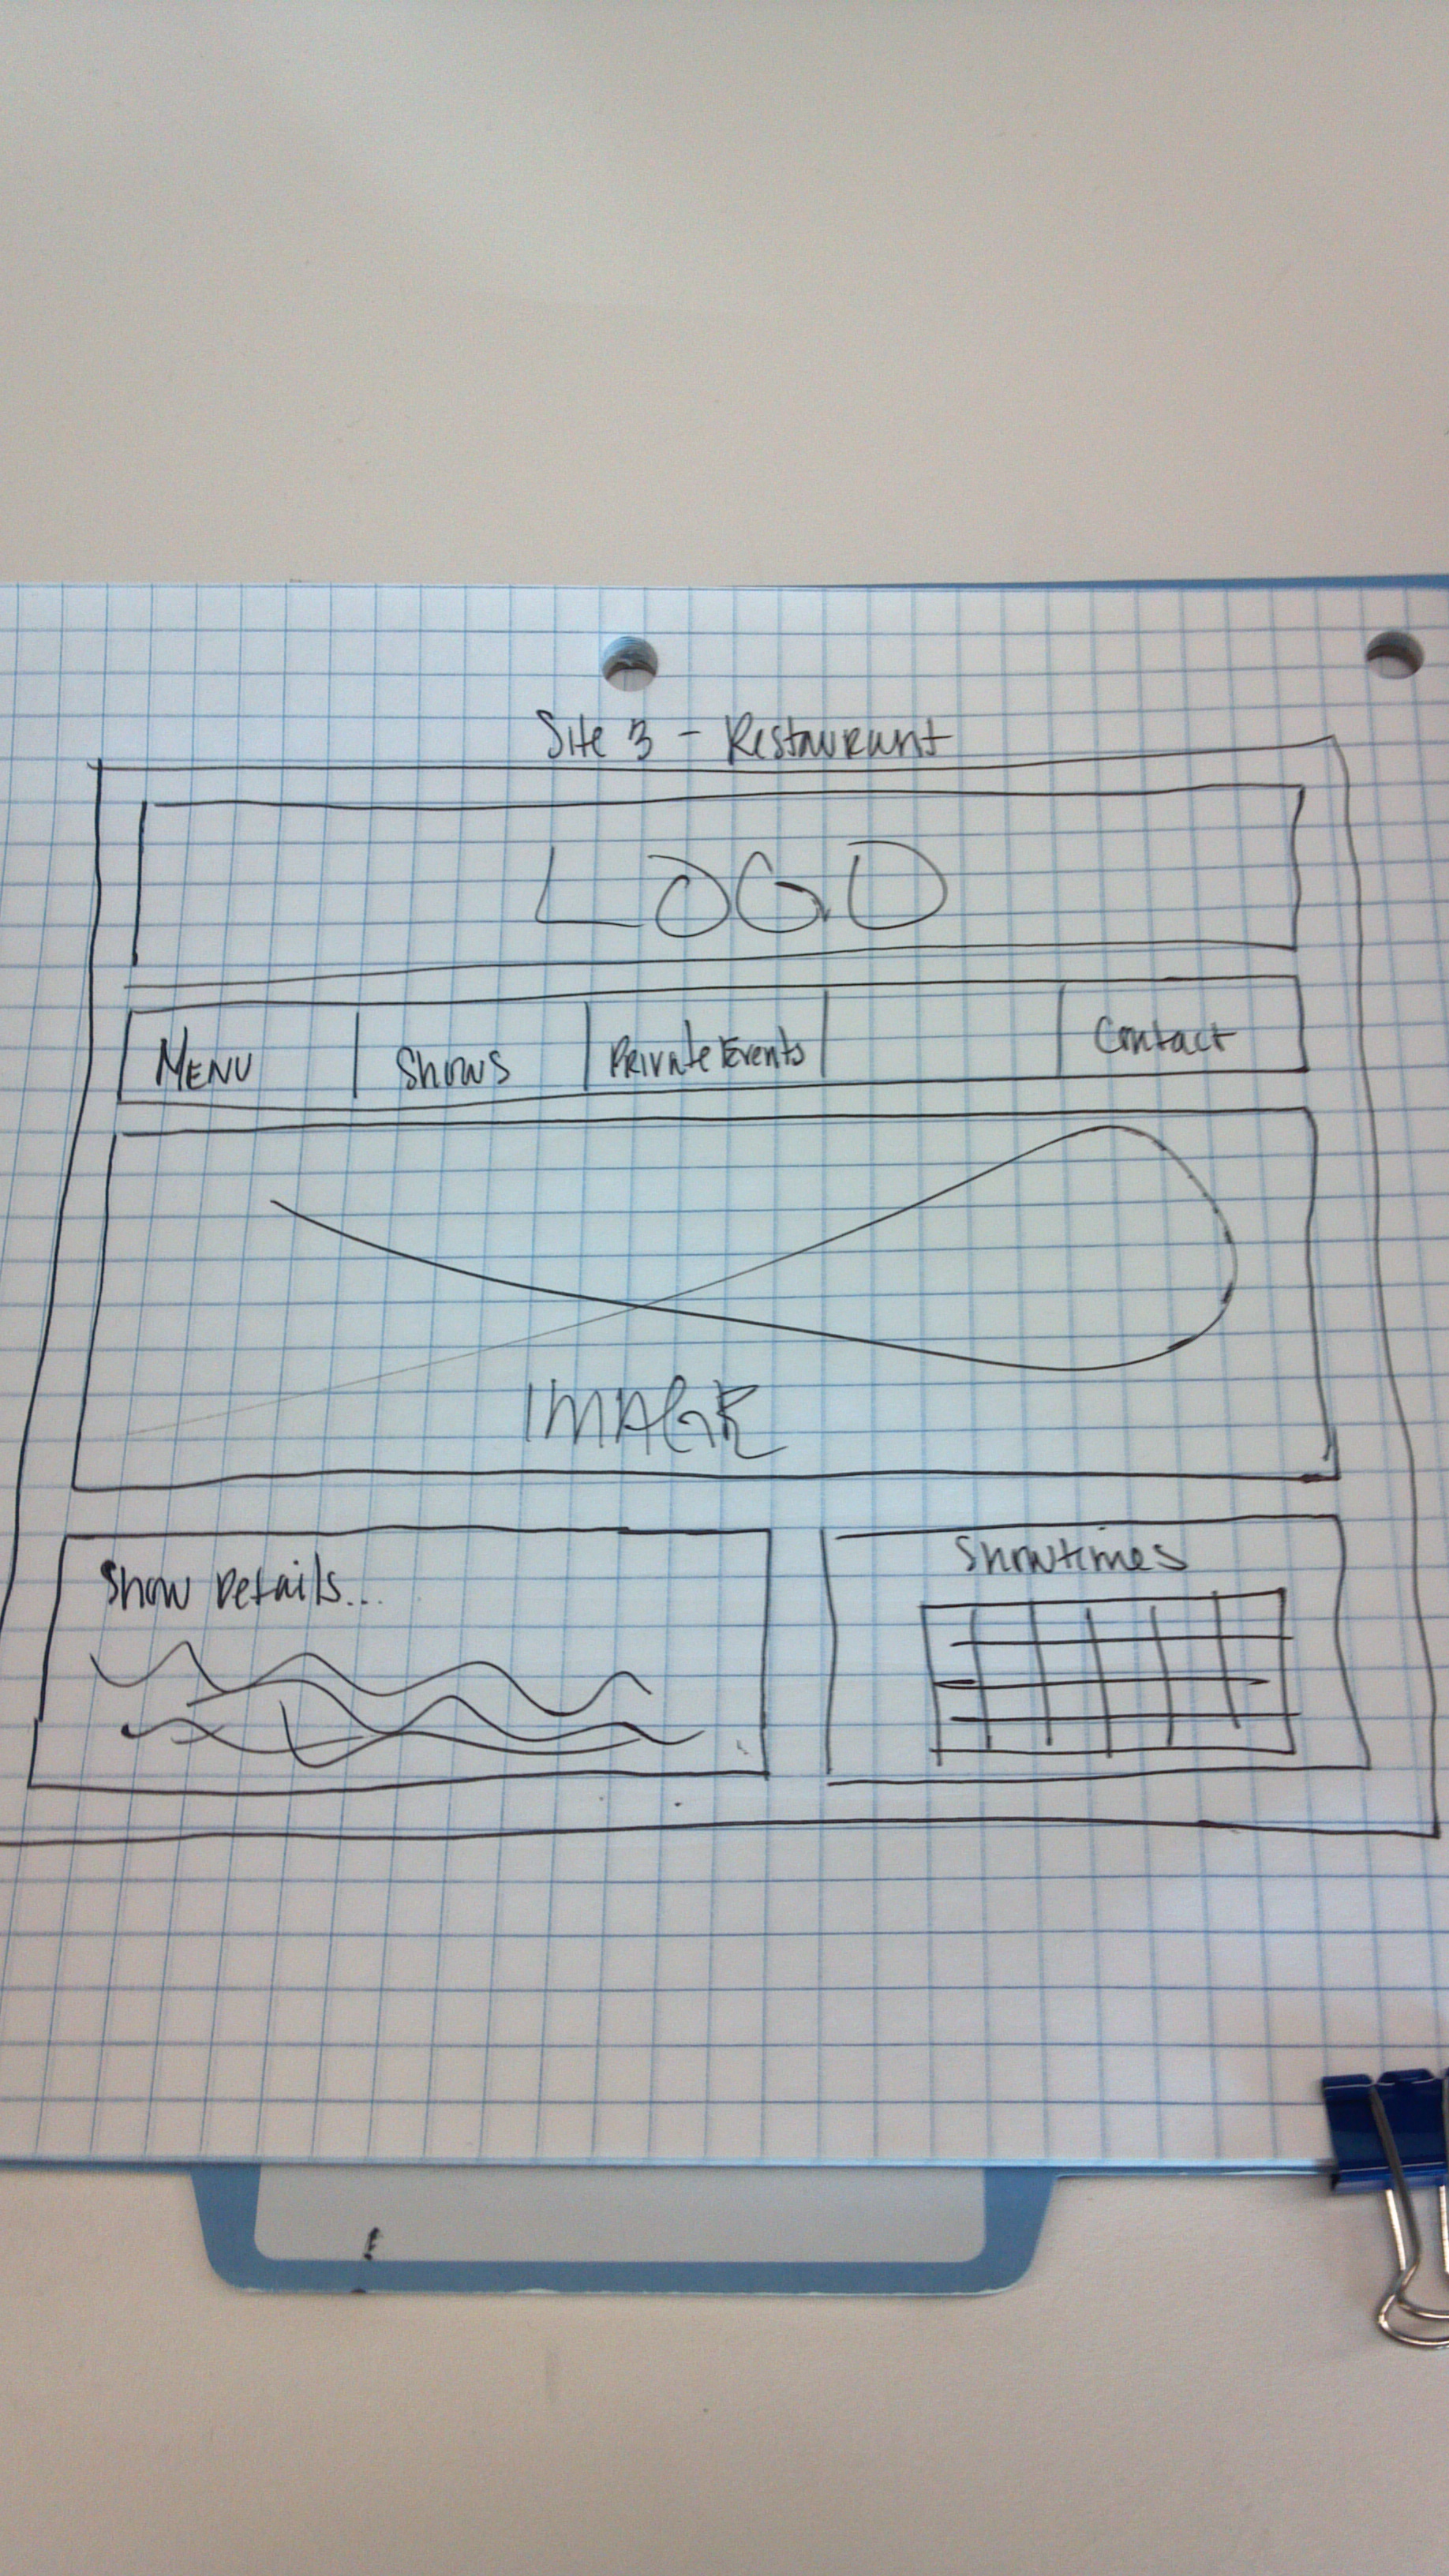 Site 3 - Restaurant
LOGO
MENU
Shows
Private Events
Contact
IMAGE
Show Details...
Showtimes